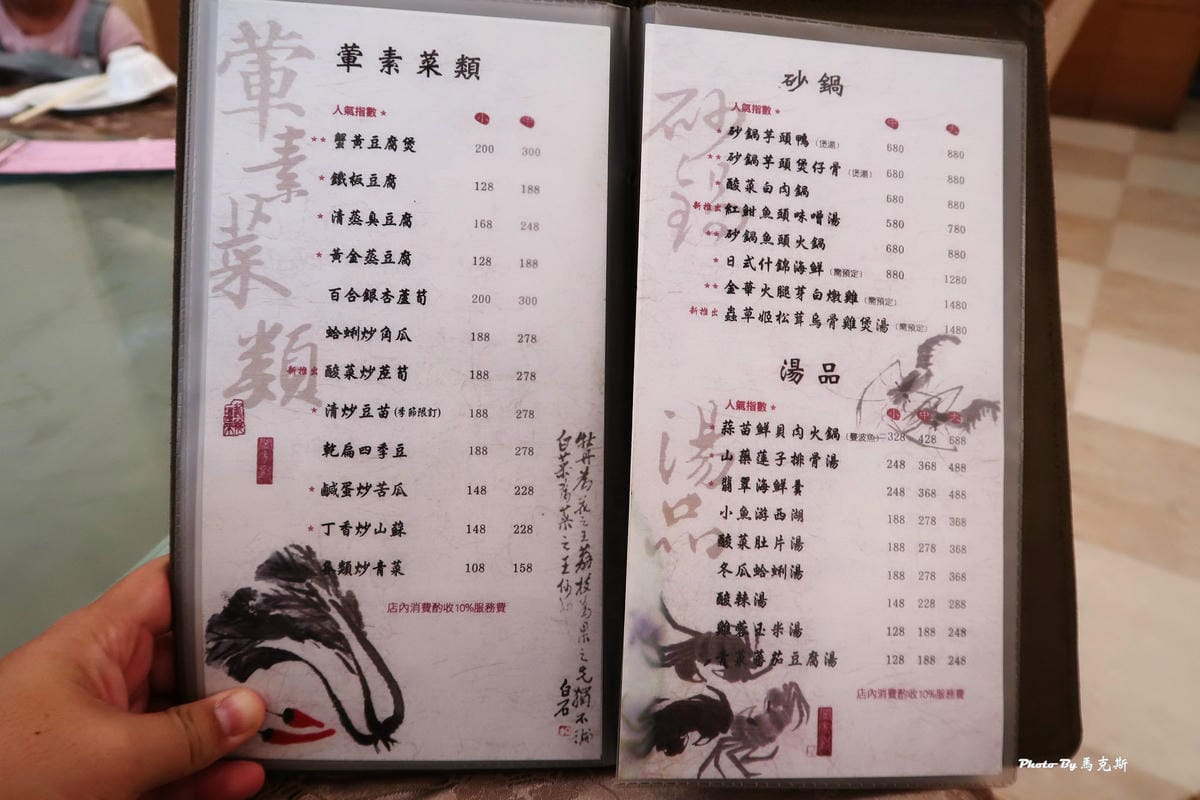 葷素菜類
葷素菜類
人氣指數 ★ 小 中
★★ 蟹黃豆腐煲 200 300
★ 鐵板豆腐 128 188
★ 清蒸臭豆腐 168 248
★ 黃金蒸豆腐 128 188
百合銀杏蘆筍 200 300
蛤蜊炒角瓜 188 278
新推出 酸菜炒蔗筍 188 278
★ 清炒豆苗(季節限訂) 188 278
乾扁四季豆 188 278
★ 鹹蛋炒苦瓜 148 228
★ 丁香炒山蘇 148 228
類炒青菜 108 158
店內消費酌收10%服務費
牡丹為花之王荔枝為果之先獨不論
白菜為菜之王何
白石
砂鍋
砂鍋
人氣指數 ★ 中 大
★ 砂鍋芋頭鴨(煲湯) 680 880
★★ 砂鍋芋頭煲仔骨(煲湯) 680 880
★ 酸菜白肉鍋 680 880
新推出 紅魽魚頭味噌湯 580 780
★★ 砂鍋魚頭火鍋 680 880
★ 日式什錦海鮮(需預定) 880 1280
★★ 金華火腿芽白燉雞(需預定) 1480
新推出 蟲草姬松茸烏骨雞煲湯(需預定) 1480
湯品
湯品
人氣指數 ★ 小 中 大
★ 蒜苗鮮貝肉火鍋(曼波魚) 328 428 688
山藥蓮子排骨湯 248 368 488
★ 翡翠海鮮羹 248 368 488
小魚游西湖 188 278 368
酸菜肚片湯 188 278 368
冬瓜蛤蜊湯 188 278 368
酸辣湯 148 228 288
雞蓉玉米湯 128 188 248
青菜蕃茄豆腐湯 128 188 248
店內消費酌收10%服務費
Photo By 馬克斯